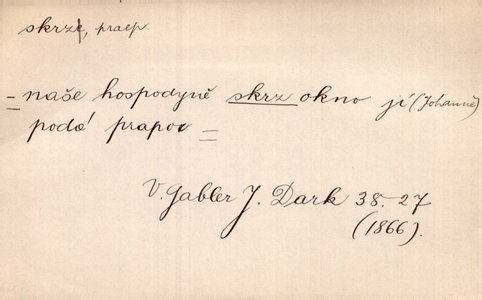 skrz, praep.
= naše hospodyně skrz okno jí (Johanně)
podá prapor =
V. Gabler J. Dark 38. 27
(1866).